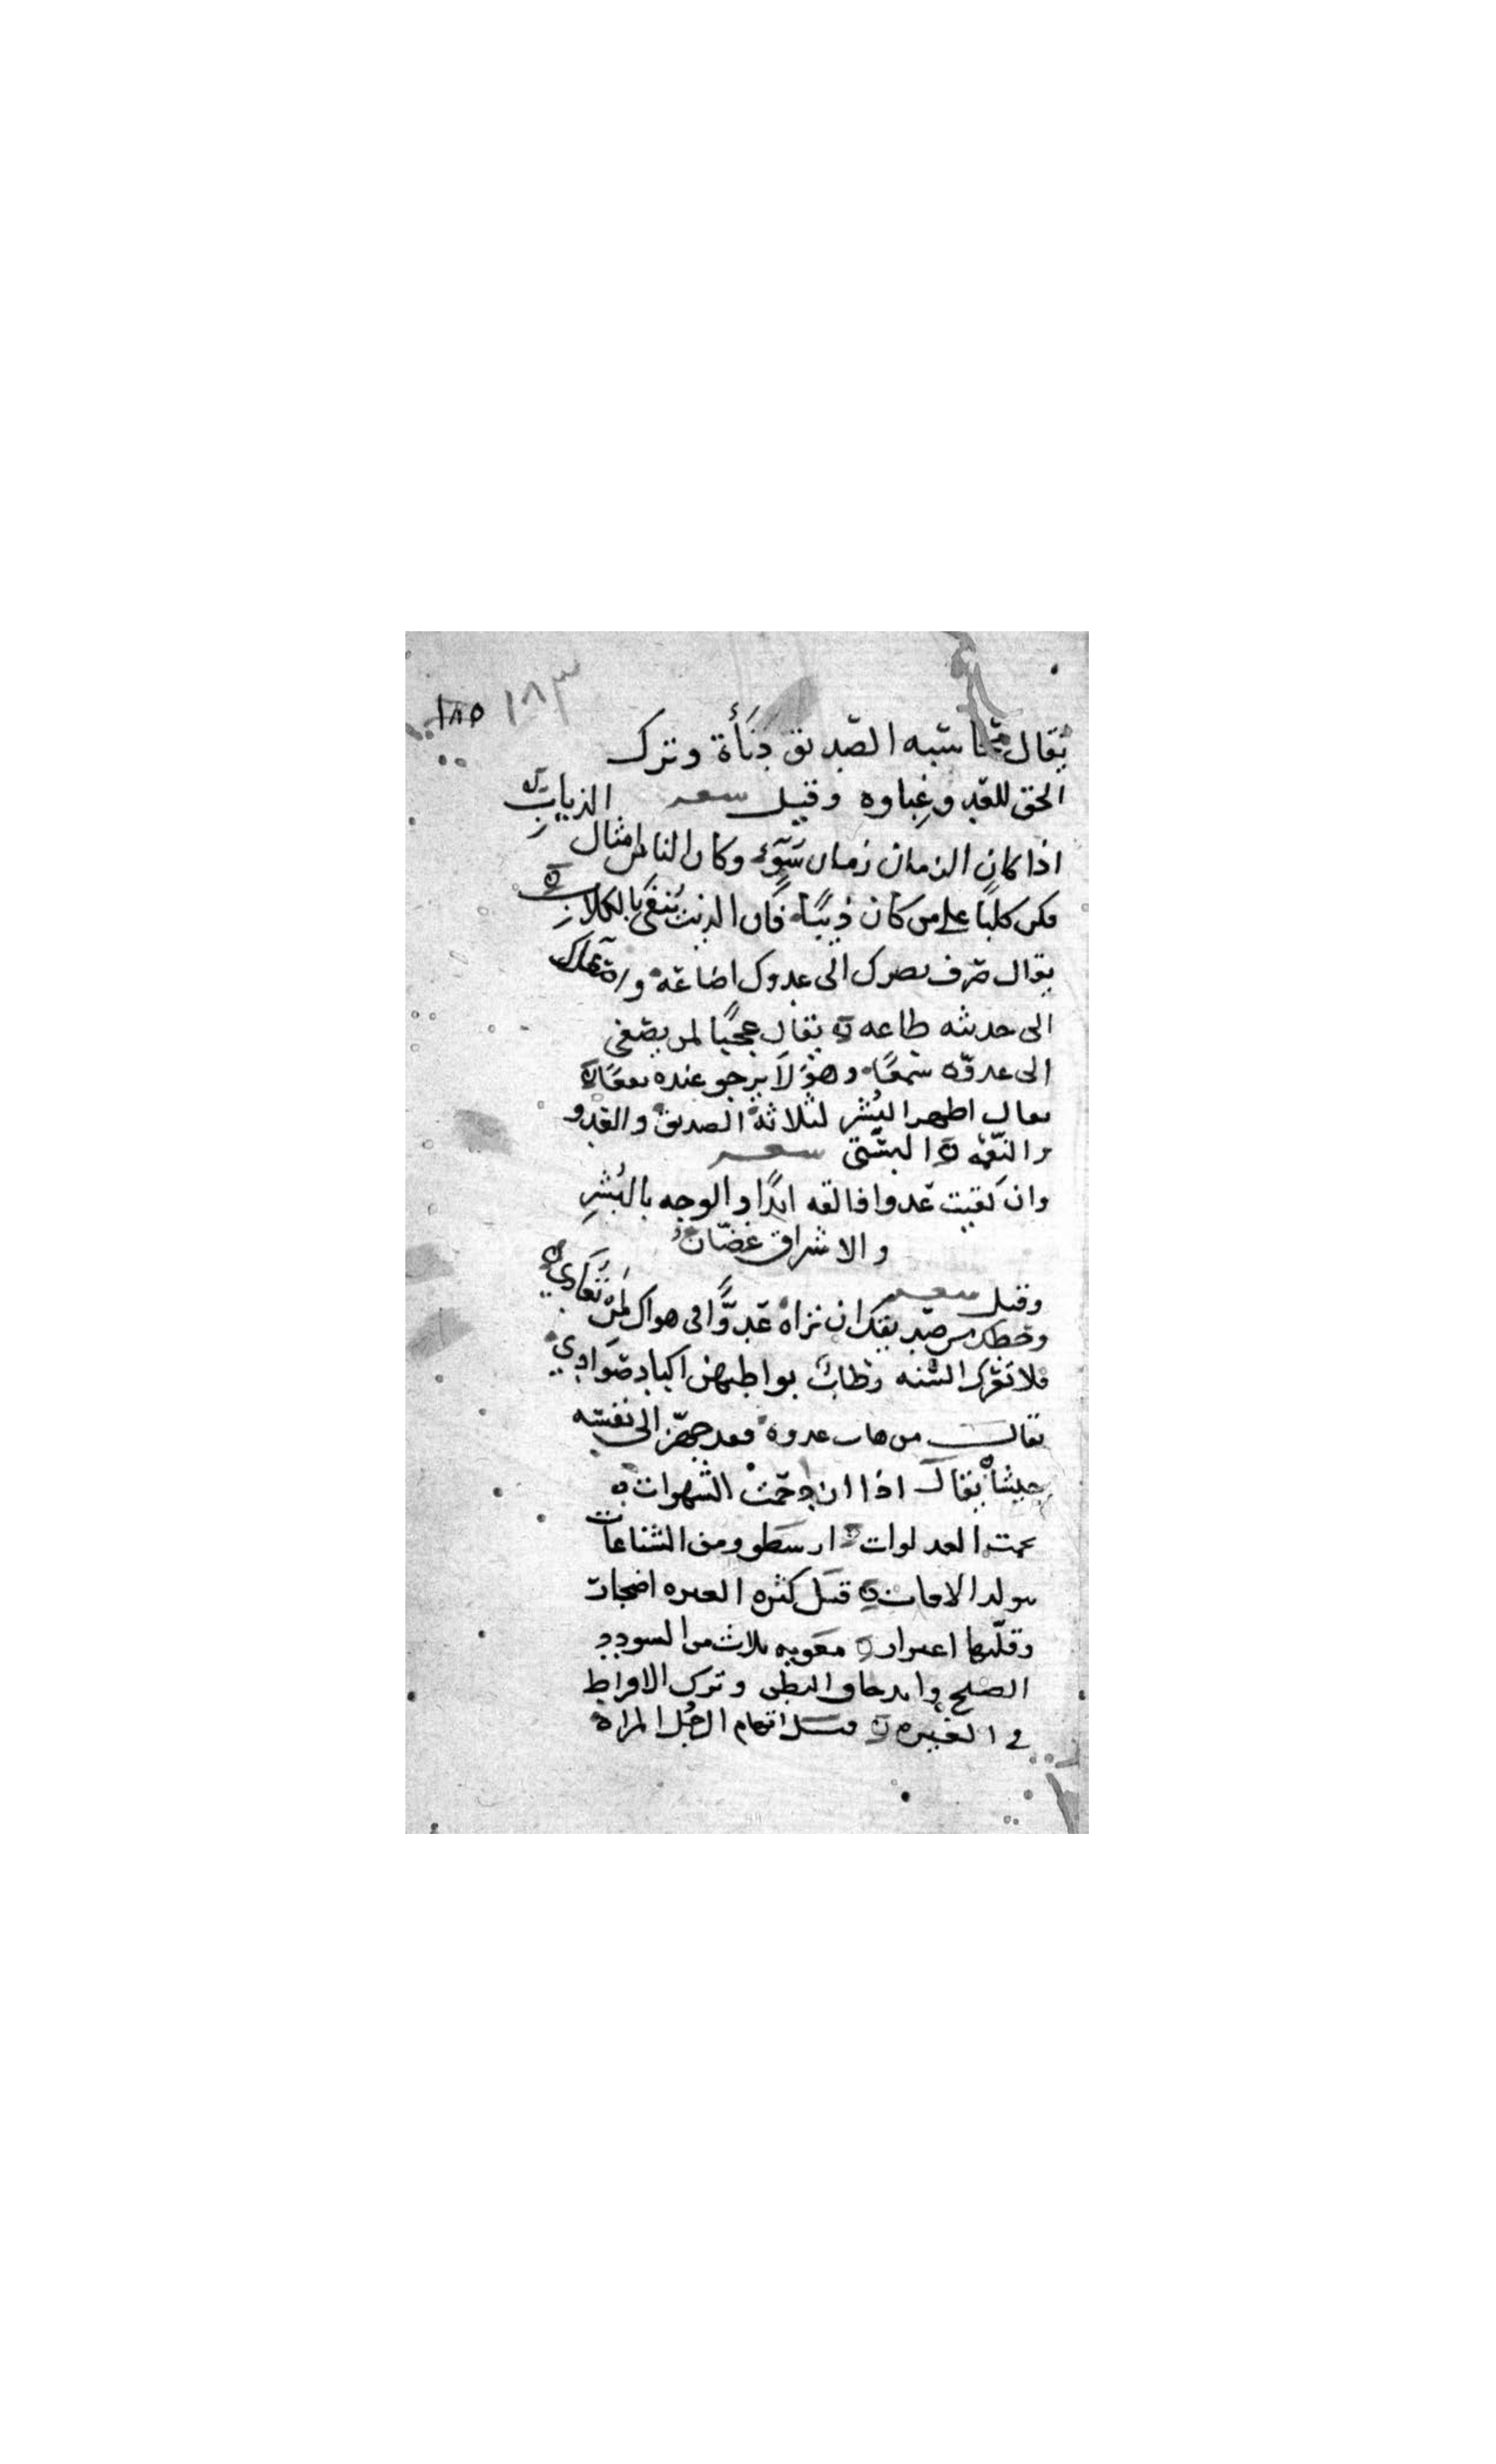 ١٨٣ ١٨٥
يقال محاسبه الصديق دنأة وترك
الحق للعدو غباوه وقيل شعر
اذا كان الزمان زمان سَوْءٍ وكان الناس امثال الذياب
فكن كلبًا على من كان ذيبًا فان الذيب يُتقى بالكلاب
يقال صرف بصرك الى عدوك اضاعه و
الى حديثه طاعه يقال عجبًا لمن يصغى
الى عدوّه سمعًا وهو لا يرجو عنده نفعًا
يقال اظهر البُشر لثلاثة الصديق والعدو
والنعمه البستى شعر
وان لقيت عدوا فالقه ابدًا والوجه بالبُشرِ
والاشراق غضّانُ
وقيل شعر
وحظك من صديقك ان تراه عدوًّا فى هواك لمن تُعَادي
فلا تغررك السنه رطابٌ بواطنهن اكباد صَوَادي
يقال من هاب عدوه فقد جهّز الى نفسه
جيشا يقال اذا ازدحمت الشهوات
تمت العداوات ارسطو ومن الشناعات
تتولد الافات قيل كثره الغيره اضجار
وقلّتها اغترار معويه ثلاث من السودد
الصلع واندحاق البطن وترك الافراط
في الغيره قيل اتهام الرجُل المراة